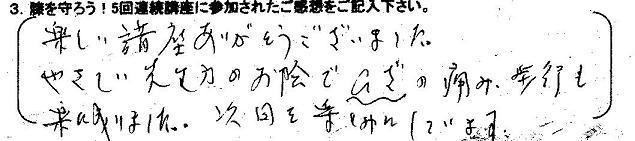 3. 膝を守ろう！5回連続講座に参加されたご感想をご記入下さい。
楽しい講座ありがとうございました。
やさしい先生方のお陰でひざの痛み、歩行も
楽になりました。次回を楽しみにしています。